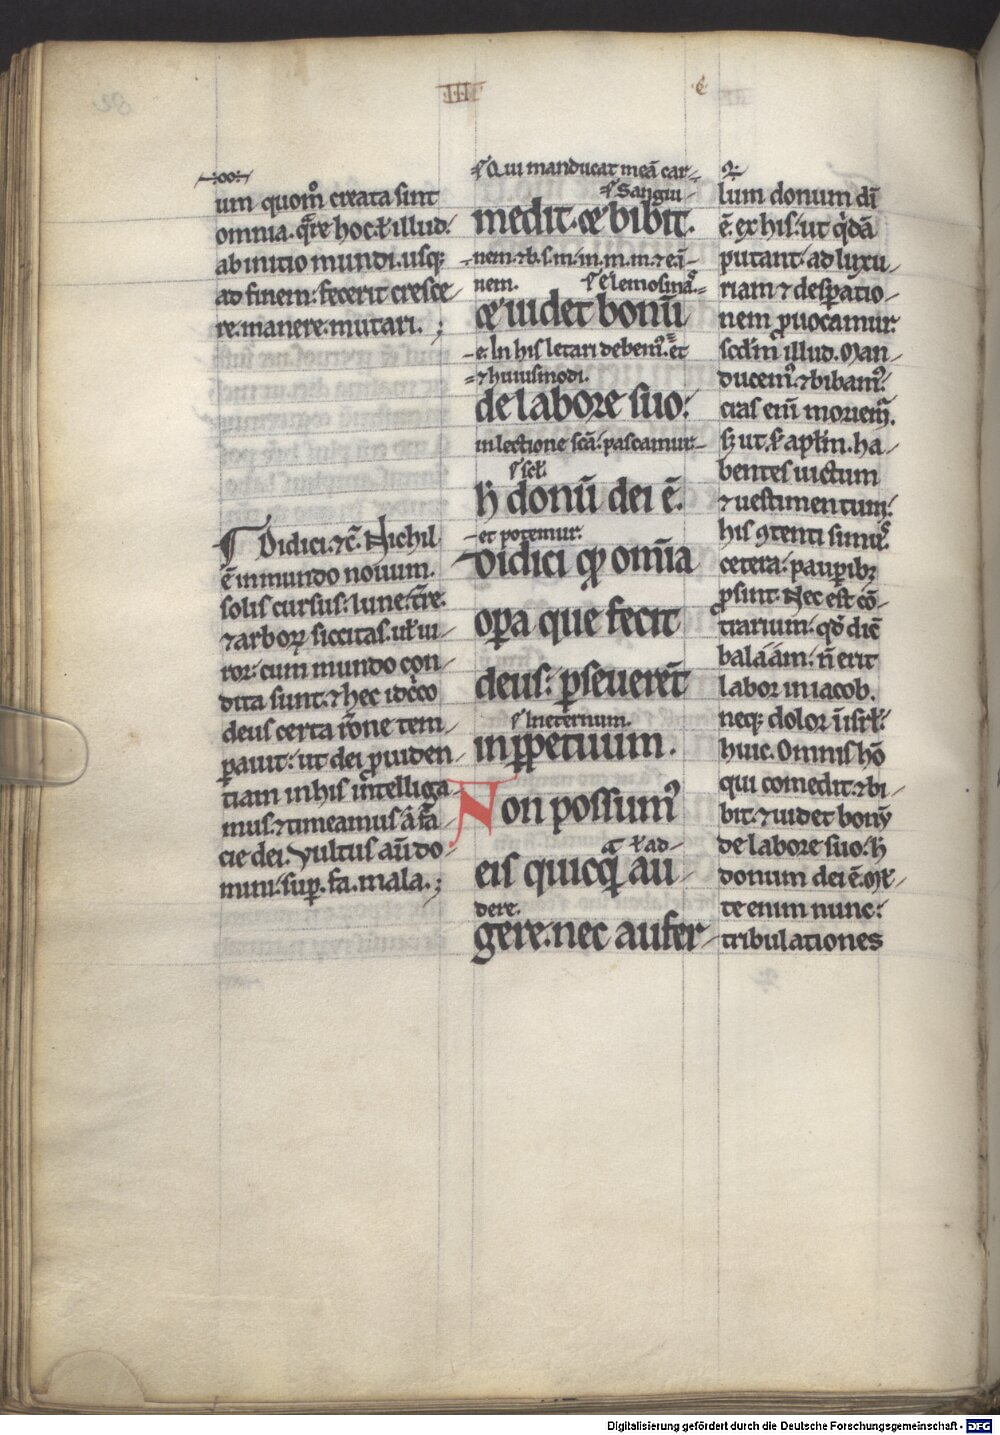 III
um quom̊ creata sint
omnia. q̃re hoc. ł illud.
ab initio mundi. usq;
ad finem: fecerit cresce-
re. manere. mutari. ;
Didici. ⁊c̃. Nichil
ẽ in mundo nouum.
solis cursus: lune: t̃re.
⁊ arborꝝ siccitas. uł ui-
ror: cum mundo con-
dita sunt. ⁊ hec idcͦco
deus certa r̃one tem-
ꝑauit: ut dei ꝓuiden-
tiam in his intelliga-
mus. ⁊ timeamus a fa-
cie dei. Vultus aũ do-
mini. suꝑ. fa. mala. ;
Qui manducat meã car-
Sangui-
medit. & bibit.
nem. ⁊ b. s. m. in. m. m. ⁊ eã-
nem. Elemosina-
& uidet bonũ
e. In his letari debem᷒. et
⁊ huiusmodi.
de labore suo:
in lectione scã. pascamur-
scł.
h̃ donũ dei ẽ.
et potemur.
Didici qđ om̃ia
oꝑa que fecit
deus: ꝑseuerẽt
In eternum.
in ꝑpetuum.
Non possum᷒
ł ad-
eis quicq̃ au
dere.
gere. nec aufer-
lum donum dĩ
ẽ. ex his: ut q̃dã
putant: ad luxu-
riam ⁊ desꝑatio-
nem ꝓuocamur.
scd̃m illud. Man-
ducem᷒. ⁊ bibam᷒.
cras eni᷒ moriem̃.
sꝫ ut ł aplm̃. ha-
bentes uictum
⁊ uestimentum:
his ꝯtenti simus.
cetera: pauꝑibꝫ
ꝓsint. Nec est cõ-
trarium. qđ dic̃
balaam: ñ erit
labor in iacob.
neq; dolor ĩ isrł:
huic. Omnis hõ
qui comedit. ⁊ bi-
bit. ⁊ uidet bonũ
de labore suo: h̃
donum dei ẽ. An-
te enim nunc:
tribulationes
Digitalisierung gefördert durch die Deutsche Forschungsgemeinschaft - DFG